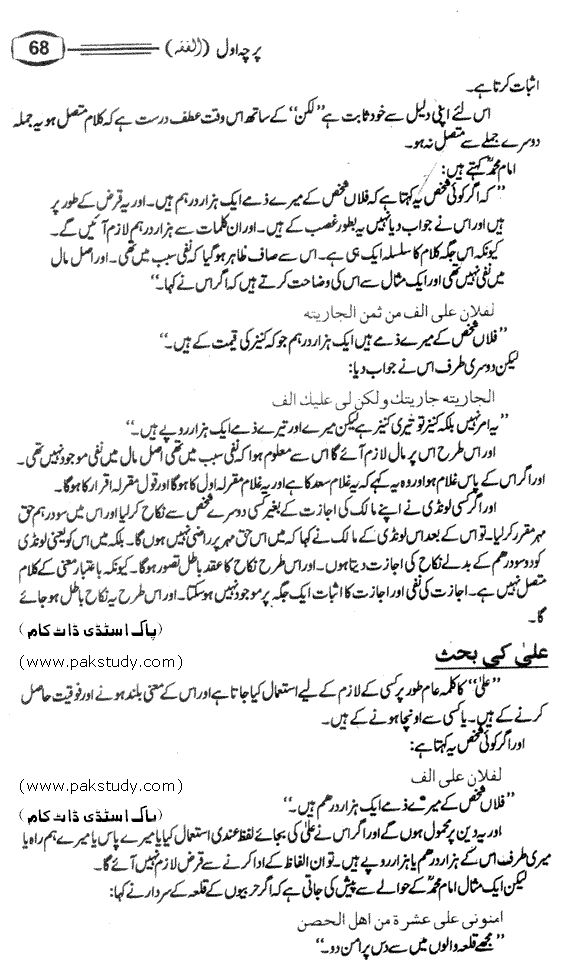 پرچہ اول (الفقہ) 68
اثبات کرتا ہے۔
اس لئے اپنی دلیل سے خود ثابت ہے ”لکن“ کے ساتھ اس وقت عطف درست ہے کہ کلام متصل ہو یہ جملہ
دوسرے جملے سے متصل نہ ہو۔
امام محمدؒ کہتے ہیں:
”کہ اگر کوئی شخص یہ کہتا ہے کہ فلاں شخص کے میرے ذمے ایک ہزار درہم ہیں۔ اور یہ قرض کے طور پر
ہیں اور اس نے جواب دیا نہیں یہ بطور غصب کے ہیں۔ اور ان کلمات سے ہزار درہم لازم آئیں گے۔
کیونکہ اس جگہ کلام کا سلسلہ ایک ہی ہے۔ اس سے صاف ظاہر ہو گیا کہ نفی سبب میں تھی۔ اور اصل مال
میں نفی نہیں تھی اور ایک مثال سے اس کی وضاحت کرتے ہیں کہ اگر اس نے کہا۔“
لفلان علی الف من ثمن الجاریته
”فلاں شخص کے میرے ذمے ہیں ایک ہزار درہم جو کہ کنیز کی قیمت کے ہیں۔“
لیکن دوسری طرف اس نے جواب دیا:
الجاریته جاریتك ولکن لی علیك الف
”یہ امر نہیں بلکہ کنیز تو تیری کنیز ہے لیکن میرے اور تیرے ذمے ایک ہزار روپے ہیں۔“
اور اس طرح اس پر مال لازم آئے گا اس سے معلوم ہوا کہ نفی سبب میں تھی اصل مال میں نفی موجود نہیں تھی۔
اور اگر اس کے پاس غلام ہو اور وہ یہ کہے کہ یہ غلام سعد کا ہے اور یہ غلام مقرلہ اول کا ہوگا اور قول مقرلہ اقرار کا ہوگا۔
اور اگر کسی لونڈی نے اپنے مالک کی اجازت کے بغیر کسی دوسرے شخص سے نکاح کر لیا اور اس میں سو درہم حق
مہر مقرر کر لیا۔ تو اس کے بعد اس لونڈی کے مالک نے کہا کہ میں اس حق مہر پر راضی نہیں ہوں گا۔ بلکہ میں اس کو یعنی لونڈی
کو دو سو درھم کے بدلے نکاح کی اجازت دیتا ہوں۔ اور اس طرح نکاح کا عقد باطل تصور ہوگا۔ کیونکہ باعتبار معنی کے کلام
متصل نہیں ہے۔ اجازت کی نفی اور اجازت کا اثبات ایک جگہ پر موجود نہیں ہو سکتا۔ اور اس طرح یہ نکاح باطل ہو جائے
گا۔
(پاک اسٹڈی ڈاٹ کام)
علیٰ کی بحث
(www.pakstudy.com)
”علیٰ“ کا کلمہ عام طور پر کسی کے لازم کے لیے استعمال کیا جاتا ہے اور اس کے معنی بلند ہونے اور فوقیت حاصل
کرنے کے ہیں۔ یا کسی سے اونچا ہونے کے ہیں۔
اور اگر کوئی شخص یہ کہتا ہے:
لفلان علی الف
(www.pakstudy.com)
”فلاں شخص کے میرے ذمے ایک ہزار درھم ہیں۔“
(پاک اسٹڈی ڈاٹ کام)
اور یہ دین پر محمول ہوں گے اور اگر اس نے علیٰ کی بجائے لفظ عندی استعمال کیا یا میرے پاس یا میرے ہم راہ یا
میری طرف اس کے ہزار درھم یا ہزار روپے ہیں۔ تو ان الفاظ کے ادا کرنے سے قرض لازم نہیں آئے گا۔
لیکن ایک مثال امام محمدؒ کے حوالے سے پیش کی جاتی ہے کہ اگر حربیوں کے قلعہ کے سردار نے کہا:
امنونی علی عشرة من اهل الحصن
”مجھے قلعہ والوں میں سے دس پر امن دو۔“